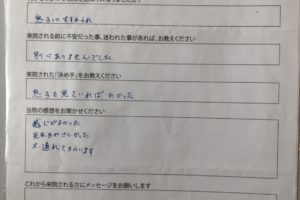 息子にすすめられ
来院される前に不安だった事、迷われた事があれば、お教えください
別にありませんでした
来院された「決め手」をお教えください
息子を見ていればわかった
当院の感想をお聞かせください
感じがよかった
先生もやさしかった
又、連れてもらいます
これから来院される方にメッセージをお願いします